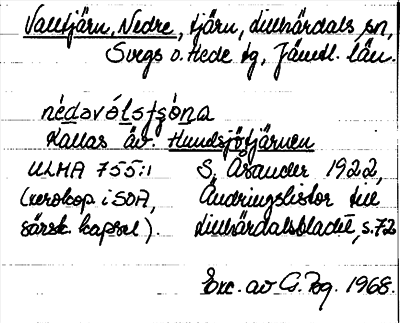 Valltjärn, Nedre, tjärn, Lillhärdals sn,
Svegs o. Hede tg, Jämtl. län.
nédavólstjǝ́na
Kallas äv. Hundsjötjärnen
ULMA 755:1 S. Åsander 1922,
(xerokop. i SOA, Ändringslistor till
särsk. kapsel). Lillhärdalsbladet, s. 72
Exc. av G. Pg. 1968.